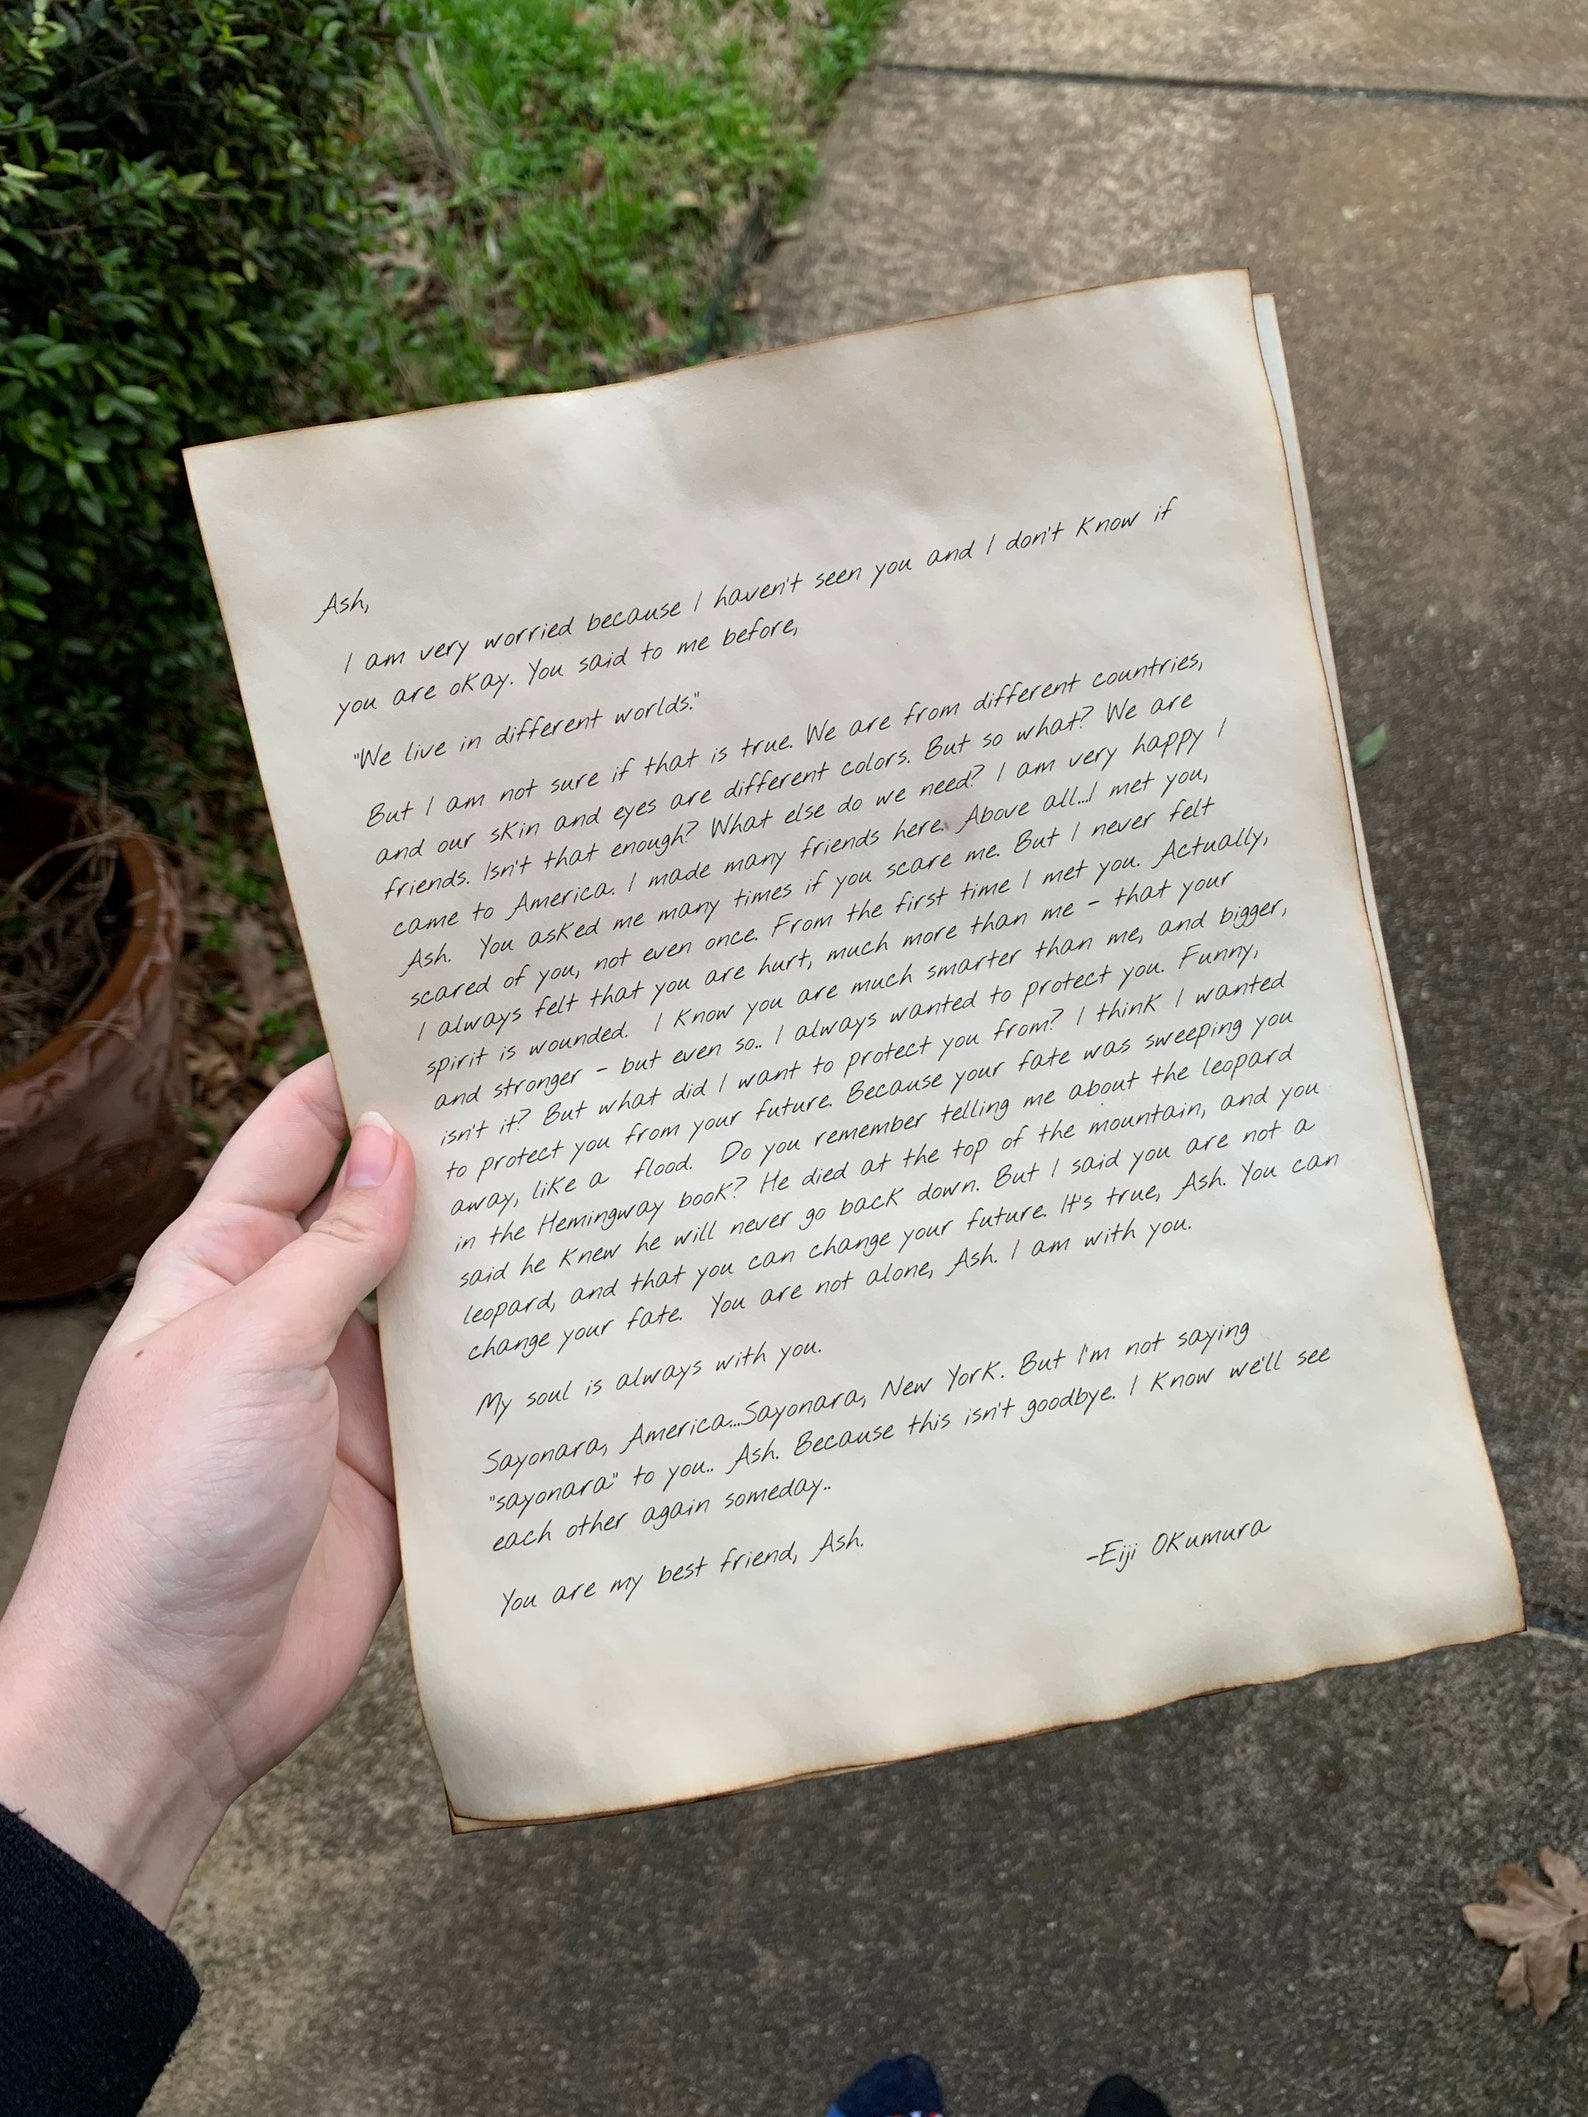 Ash,
I am very worried because I haven't seen you and I don't know if
you are okay. You said to me before,
"We live in different worlds."
But I am not sure if that is true. We are from different countries,
and our skin and eyes are different colors. But so what? We are
friends. Isn't that enough? What else do we need? I am very happy I
came to America. I made many friends here. Above all...I met you,
Ash. You asked me many times if you scare me. But I never felt
scared of you, not even once. From the first time I met you. Actually,
I always felt that you are hurt, much more than me - that your
spirit is wounded. I know you are much smarter than me, and bigger,
and stronger - but even so.. I always wanted to protect you. Funny,
isn't it? But what did I want to protect you from? I think I wanted
to protect you from your future. Because your fate was sweeping you
away, like a flood. Do you remember telling me about the leopard
in the Hemingway book? He died at the top of the mountain, and you
said he knew he will never go back down. But I said you are not a
leopard, and that you can change your future. It's true, Ash. You can
change your fate. You are not alone, Ash. I am with you.
My soul is always with you.
Sayonara, America...Sayonara, New York. But I'm not saying
"sayonara" to you.. Ash. Because this isn't goodbye. I know we'll see
each other again someday..
You are my best friend, Ash.
-Eiji Okumura